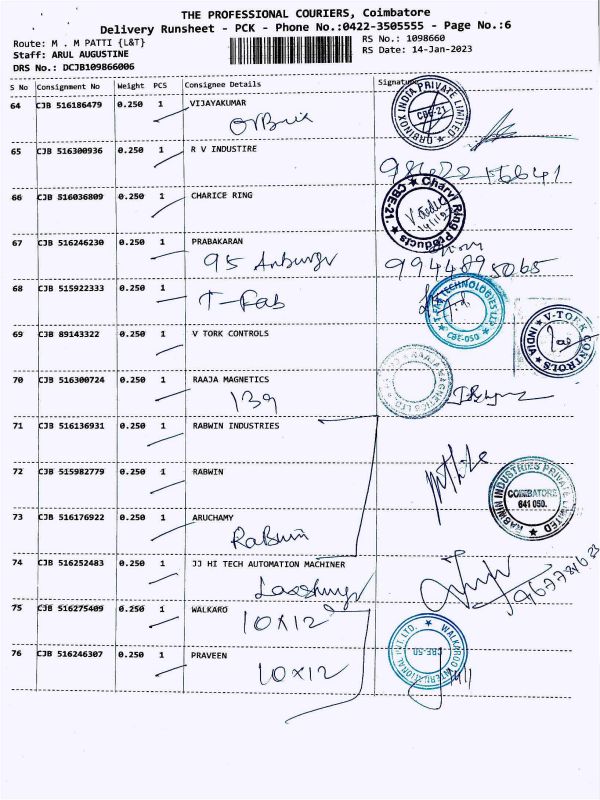 THE PROFESSIONAL COURIERS, Coimbatore
Delivery Runsheet - PCK - Phone No.:0422-3505555 - Page No.:6
Route: M . M PATTI {L&T}
RS No.: 1098660
Staff: ARUL AUGUSTINE
RS Date: 14-Jan-2023
DRS No.: DCJB109866006
S No Consignment No Weight PCS Consignee Details Signature
64 CJB 516186479 0.250 1 VIJAYAKUMAR
ORBINOX INDIA PRIVATE LIMITED
CBE-21
65 CJB 516300936 0.250 1 R V INDUSTIRE
66 CJB 516036809 0.250 1 CHARICE RING
Charvi Ring Products
CBE-21.
67 CJB 516246230 0.250 1 PRABAKARAN
95
9944895065
68 CJB 515922333 0.250 1
T-Fab
T-FAB TECHNOLOGIES LLP
CBE-050
69 CJB 89143322 0.250 1 V TORK CONTROLS
V-TORK CONTROLS
INDIA
70 CJB 516300724 0.250 1 RAAJA MAGNETICS
139
RAAJA MAGNETICS LTD
71 CJB 516136931 0.250 1 RABWIN INDUSTRIES
72 CJB 515982779 0.250 1 RABWIN
RABWIN INDUSTRIES PRIVATE LIMITED
COIMBATORE
641 050.
73 CJB 516176922 0.250 1 ARUCHAMY
Rabwin
74 CJB 516252483 0.250 1 JJ HI TECH AUTOMATION MACHINER
75 CJB 516275409 0.250 1 WALKARO
10X12
WALKAROO INTERNATIONAL PVT. LTD.
CBE-50
76 CJB 516246307 0.250 1 PRAVEEN
10X12